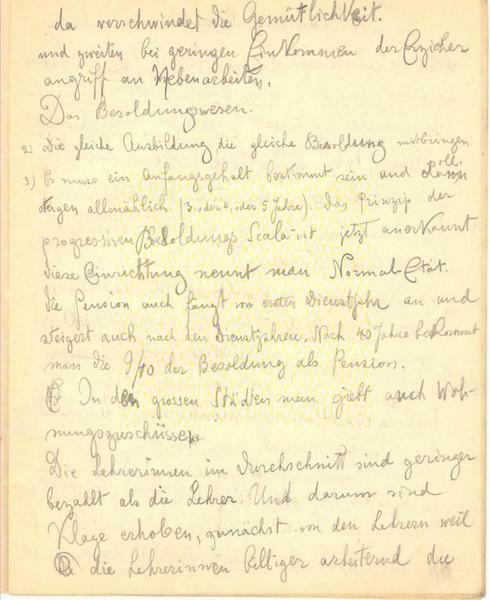 da verschwindet die Gemütlichkeit.
und zweiten bei geringen Einkommen der Erzieher
angriff an Nebenarbeiten.
Das Besoldungswesen.
2) Die gleiche Ausbildung die gleiche Besoldung mitbringen
3) Es muss ein Anfangsgehalt bestimmt sein und soll dann
steigen allmählich (3. oder 4. oder 5 Jahre). Das Prinzip der
progressiven Besoldungs Scala ist jetzt anerkannt
diese Einrichtung nennt man Normal-Etat.
die Pension auch fängt vom ersten Dienstjahr an und
steigert auch nach den Dienstjahren. Nach 40 Jahre bekommt
man die 9/10 der Besoldung als Pension.
In den grossen Städten man giebt auch Woh-
nungszuschüsse.
Die Lehrerinnen im Durchschnitt sind geringer
bezahlt als die Lehrer. Und darum sind
Klage erhoben, zunächst von den Lehrern weil
die Lehrerinnen billiger arbeitend die